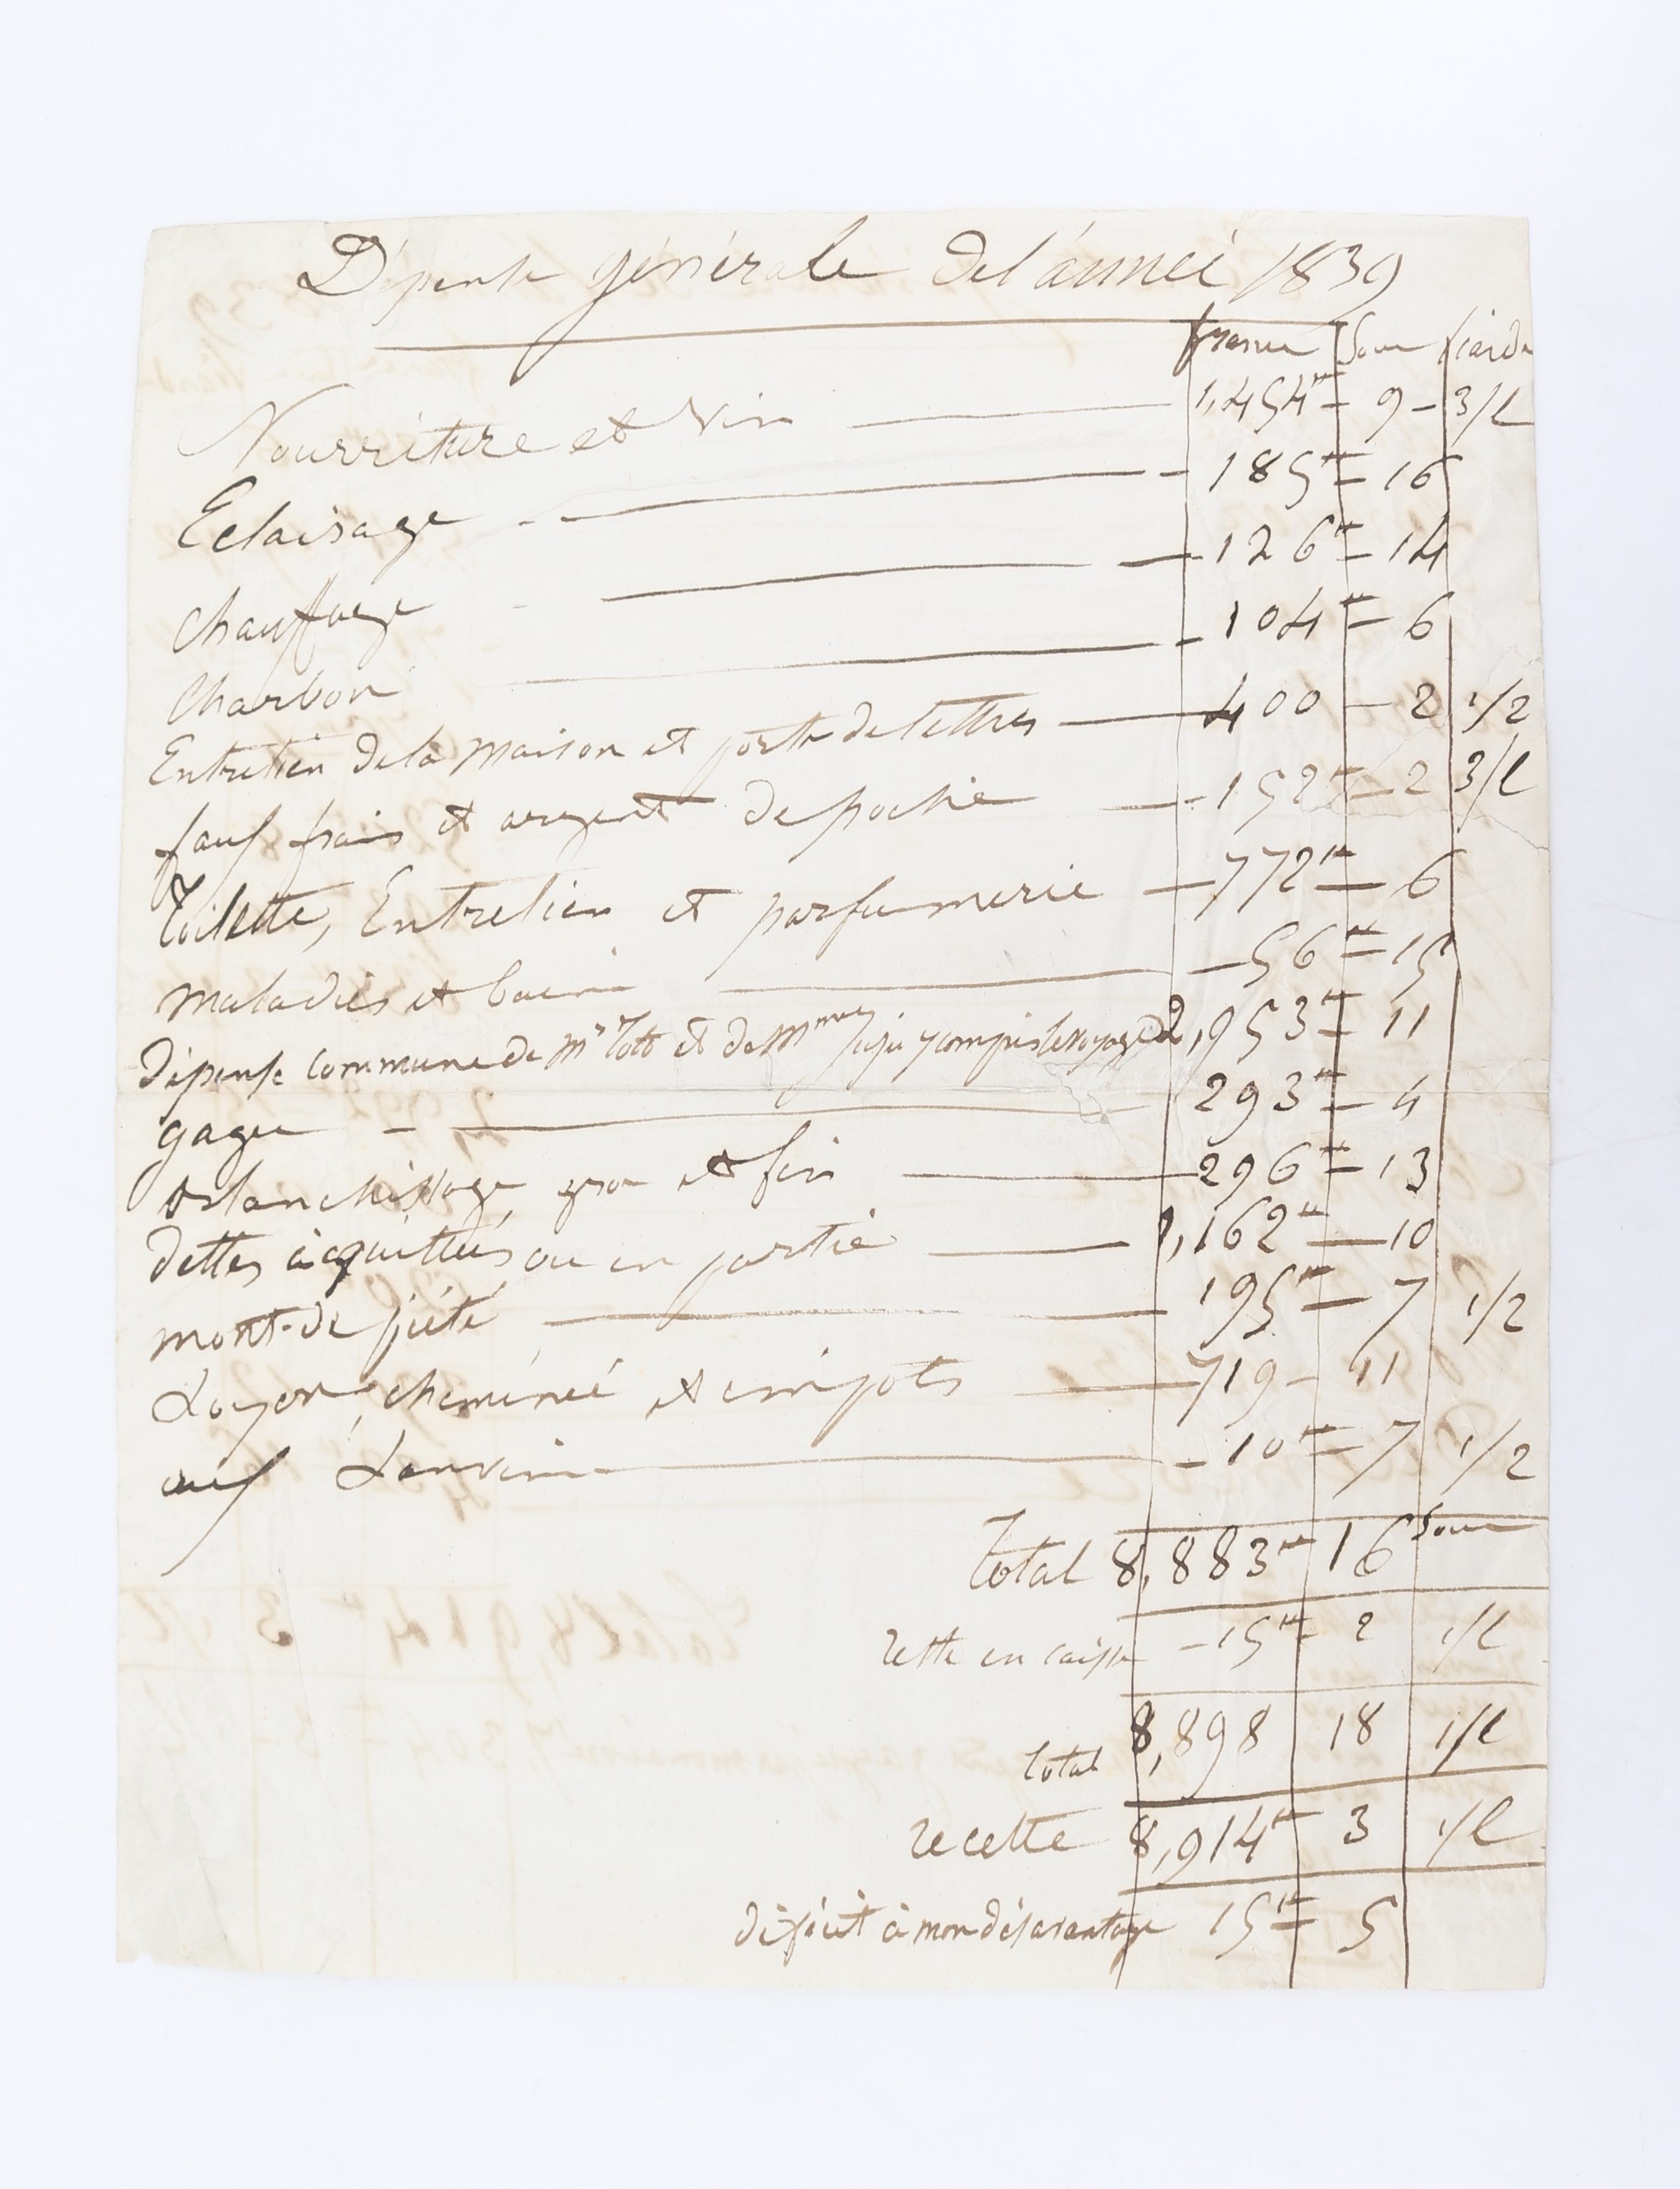 Dépense générale de l'année 1839
francs Sous liards
Nourriture et Vin 1,454 ff 9 3/l
Eclairage 185 ff 16
Chauffage 126 ff 14
Charbon 104 ff 6
Entretien de la maison et ports de lettres 400 2 1/2
faux frais et argent de poche 152 ff 2 3/l
Toilette, Entretien et parfumerie 772 ff 6
maladies et bains 56 ff 15
Dépense commune de Mr Toto et de Mme Juju y compris le voyage 2,953 ff 11
gages 293 ff 4
Blanchissage, gros et fin 296 ff 13
dettes acquittées ou en partie 1,162 ff 10
mont-de piété 195 ff 7 1/2
Loyer, cheminée et impots 719 11
aux Lanvin 10 ff 7 1/2
Total 8,883 ff 16 Sous
reste en caisse 15 ff 2 1/l
total 8,898 18 1/l
recette 8,914 ff 3 1/l
déficit à mon désavantage 15 ff 5